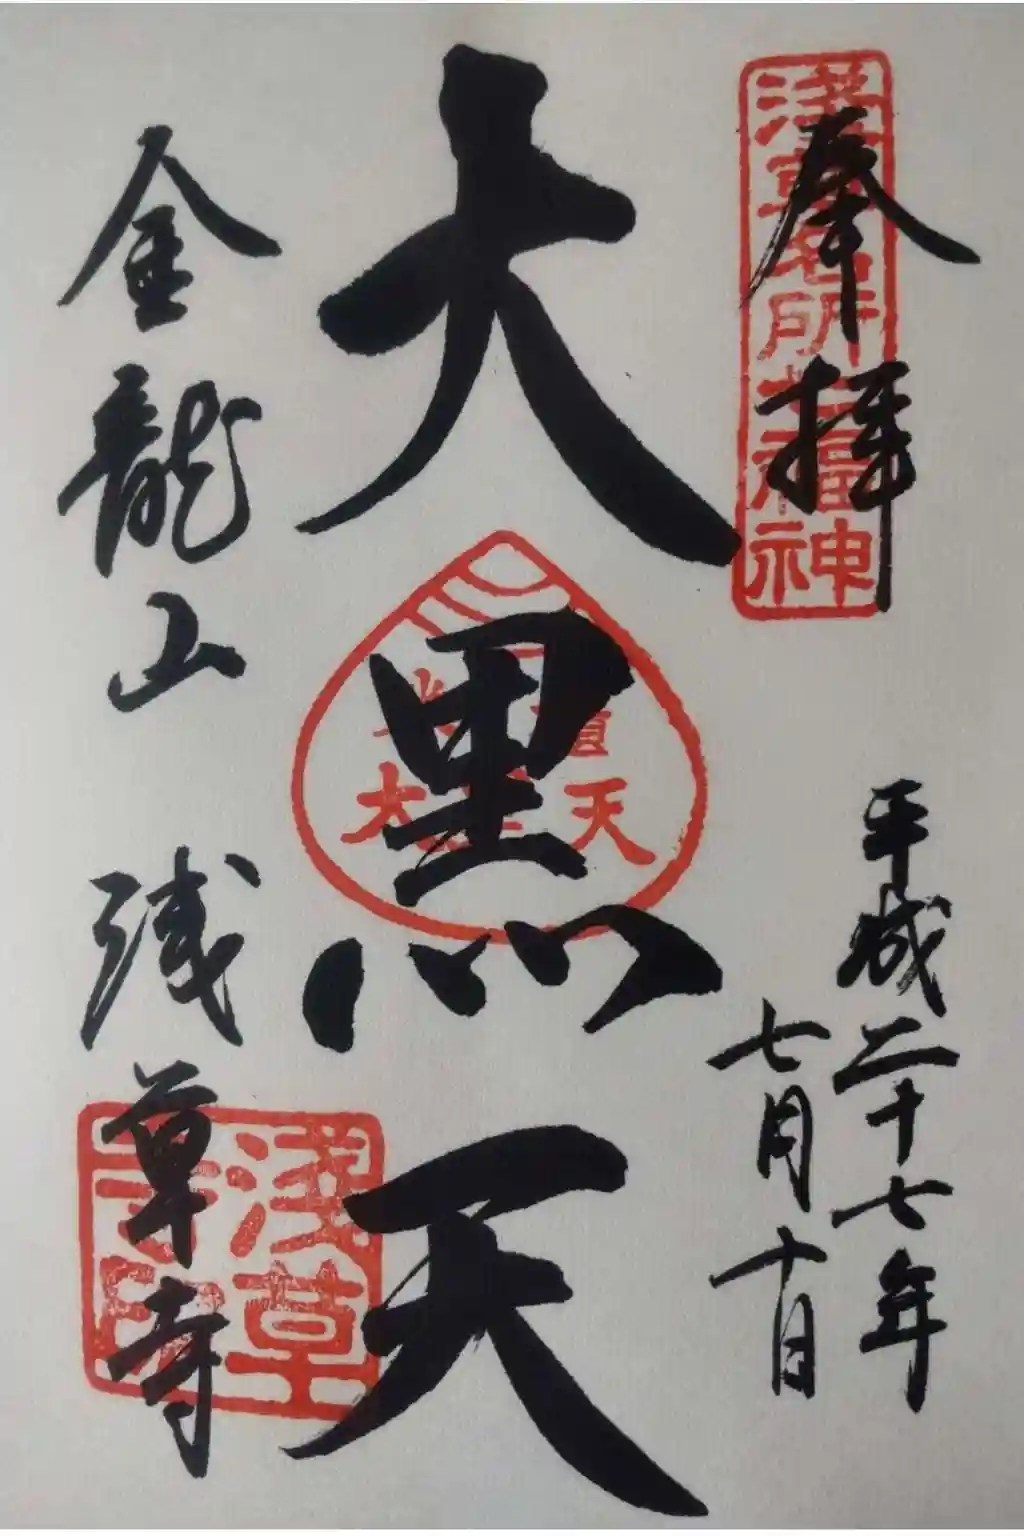 奉拝
淺草名所七福神
平成二十七年
七月十日
大黒天
大黒天
金龍山 浅草寺
淺草寺印